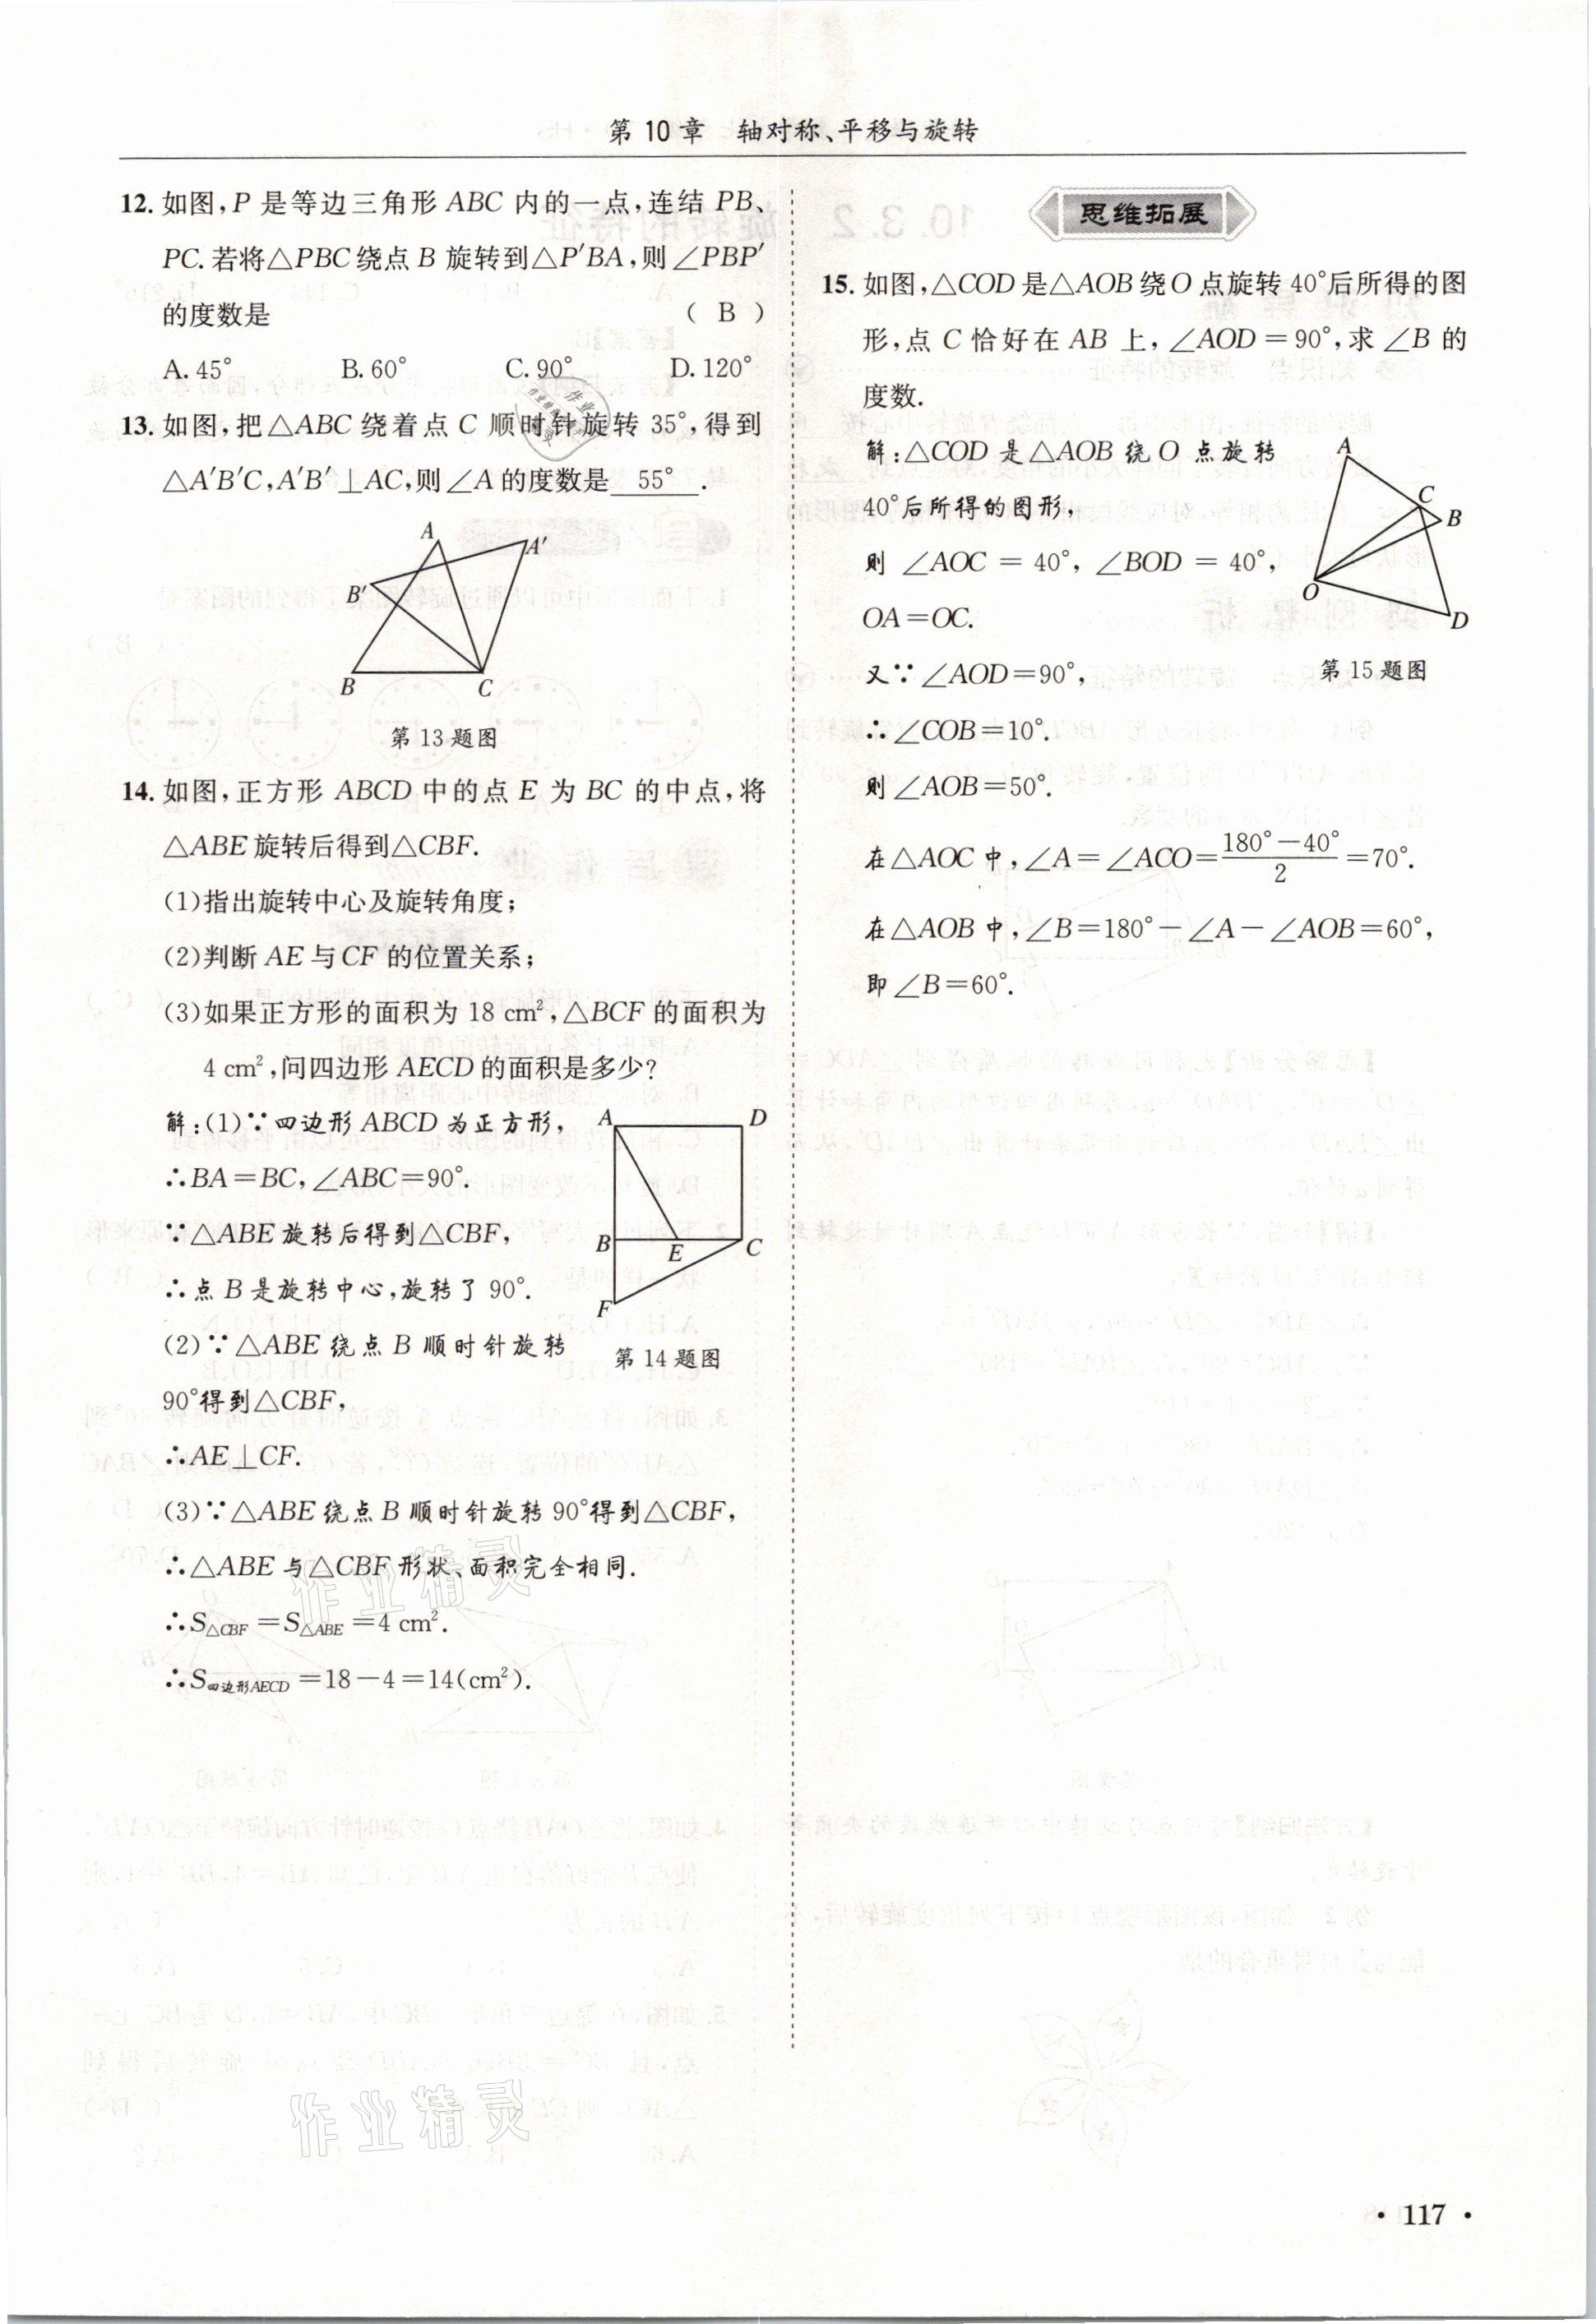 第10章 轴对称、平移与旋转
12. 如图,P 是等边三角形 ABC 内的一点,连结 PB、
PC. 若将△PBC 绕点 B 旋转到△P′BA,则∠PBP′
的度数是 ( B )
A. 45° B. 60° C. 90° D. 120°
13. 如图,把△ABC 绕着点 C 顺时针旋转 35°,得到
△A′B′C,A′B′⊥AC,则∠A 的度数是 55° .
A
A′
B′
B
C
第13题图
14. 如图,正方形 ABCD 中的点 E 为 BC 的中点,将
△ABE 旋转后得到△CBF.
(1)指出旋转中心及旋转角度;
(2)判断 AE 与 CF 的位置关系;
(3)如果正方形的面积为 18 cm²,△BCF 的面积为
4 cm²,问四边形 AECD 的面积是多少?
解:(1)∵四边形 ABCD 为正方形,
∴BA=BC,∠ABC=90°.
∵△ABE 旋转后得到△CBF,
∴点 B 是旋转中心,旋转了 90°.
(2)∵△ABE 绕点 B 顺时针旋转
90°得到△CBF,
∴AE⊥CF.
A D
B E C
F
第14题图
(3)∵△ABE 绕点 B 顺时针旋转 90°得到△CBF,
∴△ABE 与△CBF 形状、面积完全相同.
∴S△CBF=S△ABE=4 cm².
∴S四边形AECD=18-4=14(cm²).
思维拓展
15. 如图,△COD 是△AOB 绕 O 点旋转 40°后所得的图
形,点 C 恰好在 AB 上,∠AOD=90°,求∠B 的
度数.
解:△COD 是△AOB 绕 O 点旋转
40°后所得的图形,
则∠AOC=40°,∠BOD=40°,
OA=OC.
又∵∠AOD=90°,
∴∠COB=10°.
则∠AOB=50°.
A
C
B
O
D
第15题图
在△AOC 中,∠A=∠ACO=(180°-40°)/2=70°.
在△AOB 中,∠B=180°-∠A-∠AOB=60°,
即∠B=60°.
作业精灵
作业精灵
· 117 ·